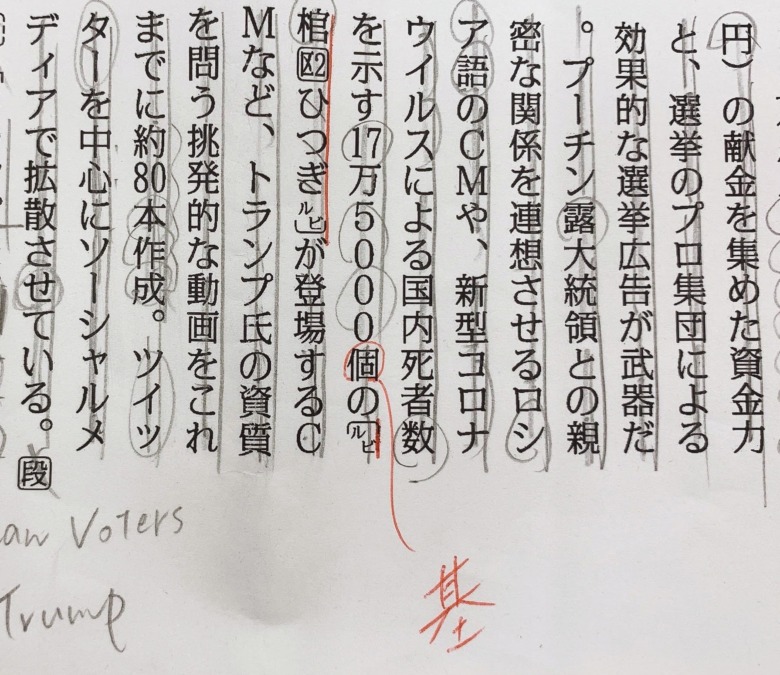 円）の献金を集めた資金力
と、選挙のプロ集団による
効果的な選挙広告が武器だ
。プーチン露大統領との親
密な関係を連想させるロシ
ア語のＣＭや、新型コロナ
ウイルスによる国内死者数
を示す17万５０００個の［ルビ
棺区2ひつぎルビ］が登場するＣ
Ｍなど、トランプ氏の資質
を問う挑発的な動画をこれ
までに約80本作成。ツイッ
ターを中心にソーシャルメ
ディアで拡散させている。段
基
an Voters
Trump